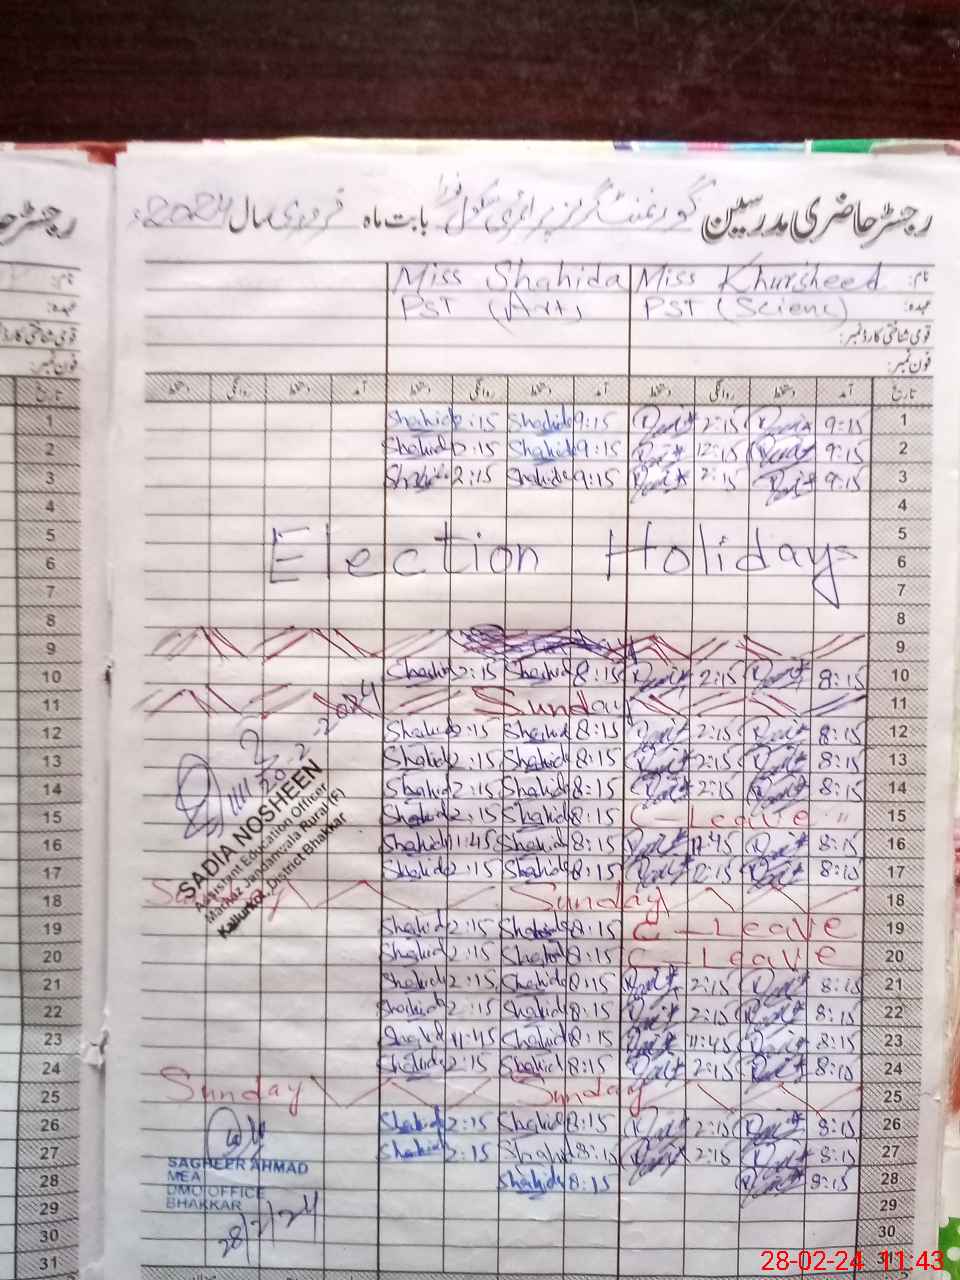 رجسٹر حاضری مدرسین گورنمنٹ گرلز پرائمری سکول بابت ماہ فروری سال 2024ء
نام: Miss Khursheed Miss Shahida
عہدہ: PST (Scienc) PST (Art)
قومی شناختی کارڈ نمبر:
فون نمبر:
تاریخ آمد دستخط روانگی دستخط آمد دستخط روانگی دستخط آمد دستخط روانگی دستخط
1 9:15 2:15 9:15 Shahida 2:15 Shahida
2 9:15 12:15 9:15 Shahida 2:15 Shahida
3 9:15 2:15 9:15 Shahida 2:15 Shahida
4
5
6 Election Holidays
7
8
9
10 8:15 2:15 8:15 Shahida 2:15 Shahida
11 Sunday
12 8:15 2:15 8:15 Shahida 2:15 Shahida
13 8:15 2:15 8:15 Shahida 2:15 Shahida
14 8:15 2:15 8:15 Shahida 2:15 Shahida
15 C-Leave 8:15 Shahida 2:15 Shahida
16 8:15 11:45 8:15 Shahida 11:45 Shahida
17 8:15 2:15 8:15 Shahida 2:15 Shahida
18 Sunday
19 C-Leave 8:15 Shahida 2:15 Shahida
20 C-Leave 8:15 Shahida 2:15 Shahida
21 8:15 2:15 8:15 Shahida 2:15 Shahida
22 8:15 2:15 8:15 Shahida 2:15 Shahida
23 8:15 11:45 8:15 Shahida 11:45 Shahida
24 8:15 2:15 8:15 Shahida 2:15 Shahida
25 Sunday Sunday
26 8:15 2:15 8:15 Shahida 2:15 Shahida
27 8:15 2:15 8:15 Shahida 2:15 Shahida
28 8:15 8:15 Shahida
29
30
31
20-2-2024
SADIA NOSHEEN
Assistant Education Officer
Markaz Jandanwala Rural (F)
Kallurkot, District Bhakkar
SAGHEER AHMAD
MEA
DMO OFFICE
BHAKKAR
28/2/24
28-02-24 11:43